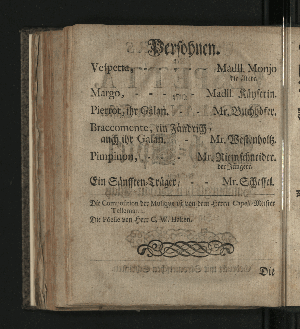 Persohnen.
Vespetta, - - Madll. Monjo
die ältere.
Margo, - - - - Madll. Käyserin.
Pierrot, ihr Galan. - - Mr. Buchhöfer.
Braccomente, ein Fändrich,
auch ihr Galan. - - Mr. Westenholtz.
Pimpinon, - - Mr. Riemschneider.
der Jüngere.
Ein Sänfften-Träger, - - Mr. Scheffel.
Die Composition der Music ist von dem Herrn Capell-Meister
Telemann.
Die Poesie von Herr C. W.
Die